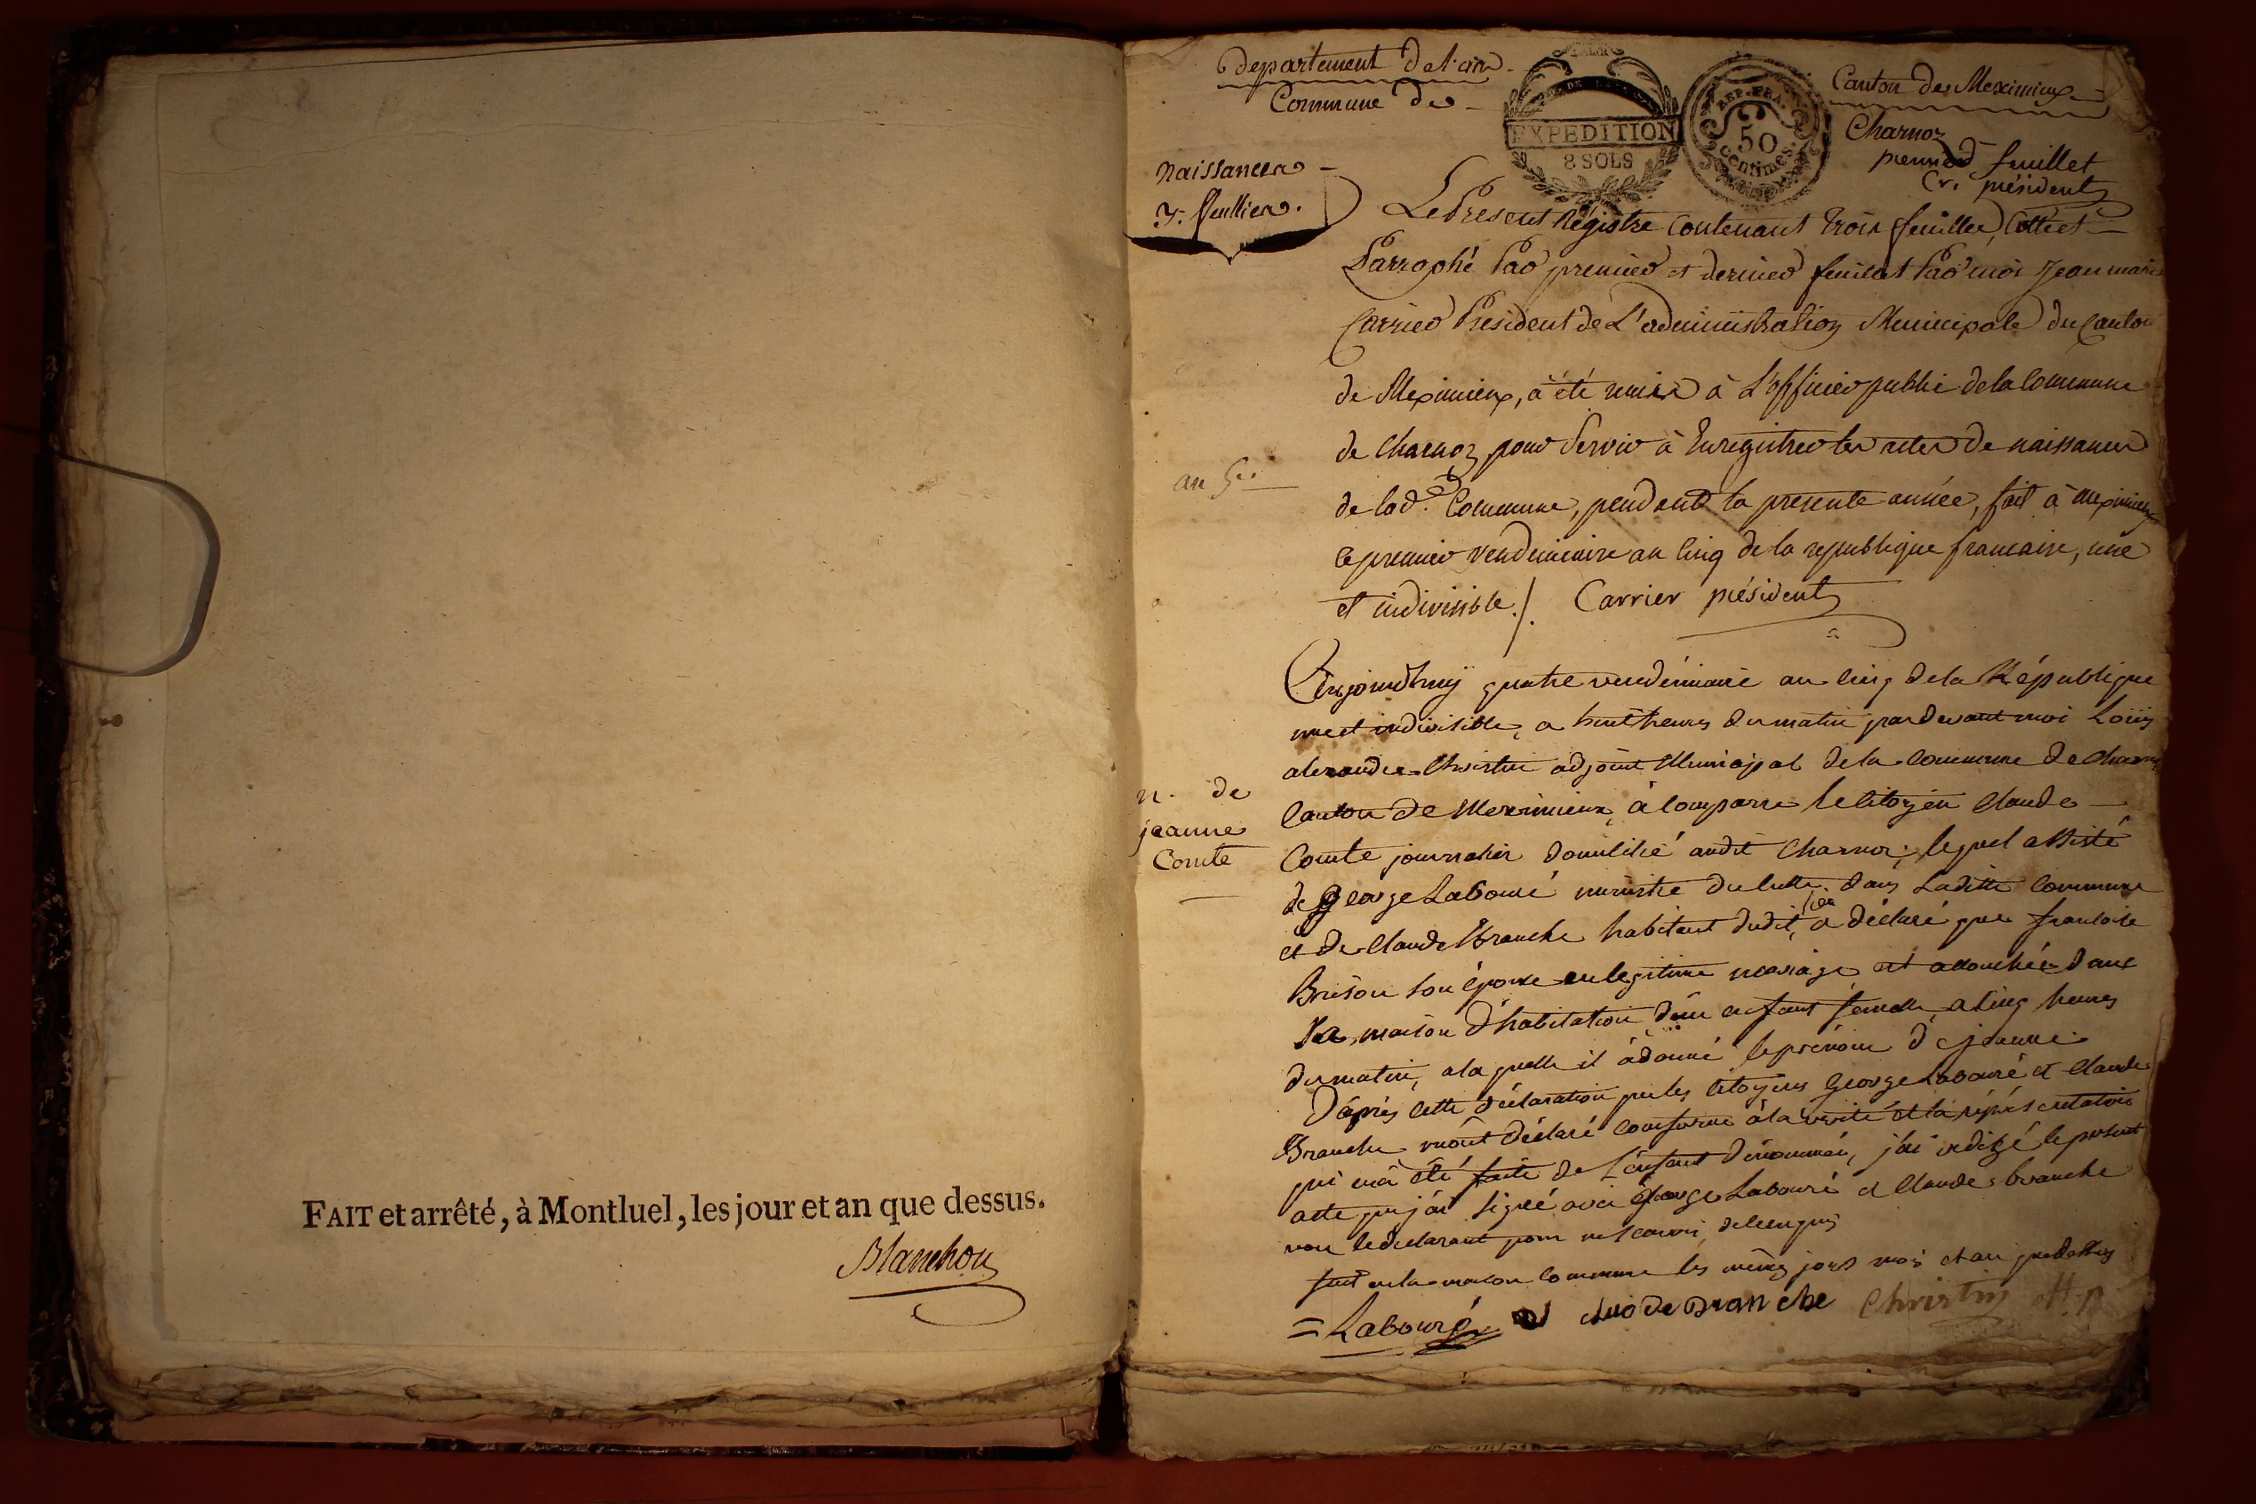 FAIT et arrêté, à Montluel, les jour et an que dessus.
Blanchon
Departement de l'ain
Commune de
EXPEDITION
8 SOLS
REP. FRA.
50
centimes.
Canton de Meximieux
Charnoz
premier feuillet
Cr. président
Naissances
3. feuilles.
Le Present Régistre Contenant trois feuilles, Cotté et
Parraphé Par premier et dernier feuillet Par moi Jean marie
Carrier Président de L'administration Municipale du Canton
de Meximieux, à été remis à L'officier public de la Commune
de Charnoz pour Servir à Enregistrer les actes de naissances
de lad. Commune, pendant la presente année, fait à meximieux
le premier vendemiaire an cinq de la republique francaise, une
et indivisible ./. Carrier président
an 5
Cejourdhuy quatre vendémiaire an cinq de la République
une et indivisible, a huit heures du matin par devant moi Loüis
alexandre Christin adjoint Municipal de la commune de Charnoz
Canton de Meximieux, à comparu le Citoyen Claude
Comte journalier domicilié audit Charnoz, lequel assisté
de george Labouré ministre du culte dans Laditte Commune
et de Claude Branche habitant dudit lieu, a déclaré que francoise
Brison son épouse en legitime mariage est accouchée dans
sa maison d'habitation d'un enfant femelle a cinq heures
du matin, a laquelle il à donné le prénom de jeanne
D'après cette déclaration que les citoyens George Labouré et Claude
Branche m'ont déclaré conforme à la vérité et la représentation
qui m'a été faite de L'enfant dénommée, j'ai redigé le present
acte que j'ai signé avec George Labouré et Claude branche
non le déclarant pour ne scavoir, de ce enquis
fait en la maison commune les mêmes jour mois et an que dessus
n. de
jeanne
Comte
= Labouré claode branche Christin